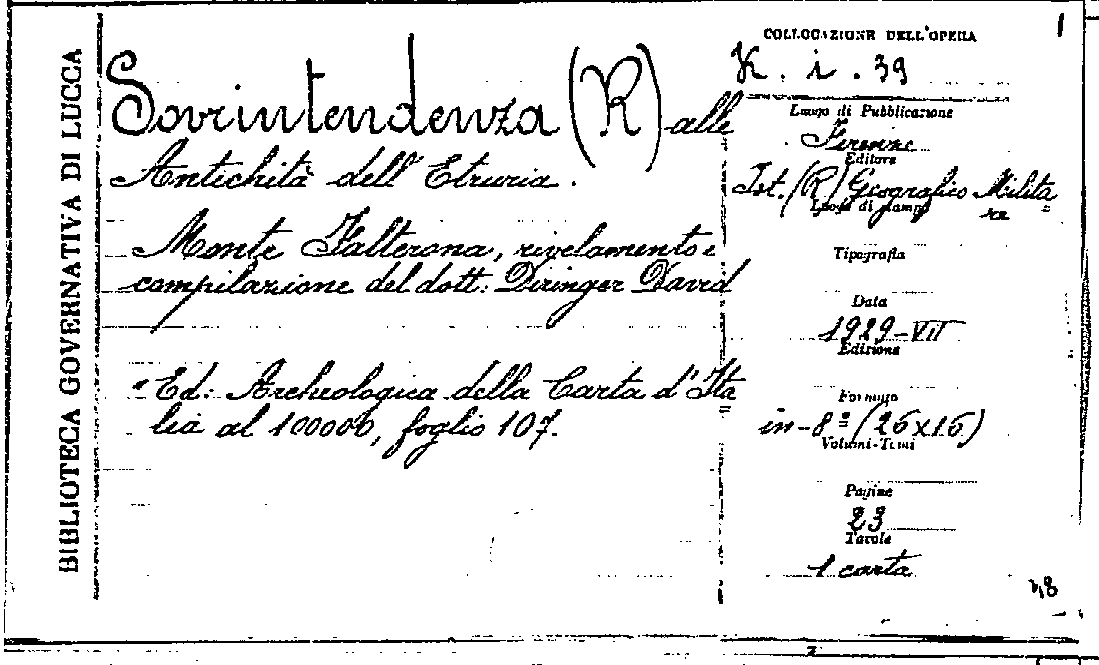 BIBLIOTECA GOVERNATIVA DI LUCCA
Sovrintendenza (R) alle
Antichità dell'Etruria.
Monte Falterona, rivelamento e
compilazione del dott: Diringer David
Ed: Archeologica della Carta d'Ita
lia al 100000, foglio 107.
1
COLLOCAZIONE DELL'OPERA
K. i. 39
Luogo di Pubblicazione
Firenze
Editore
Ist. (R) Geografico Milita=
re
Luogo di stampa
Tipografia
Data
1929-VII
Edizione
Formato
in-8º (26x16)
Volumi-Tomi
Pagine
23
Tavole
1 carta